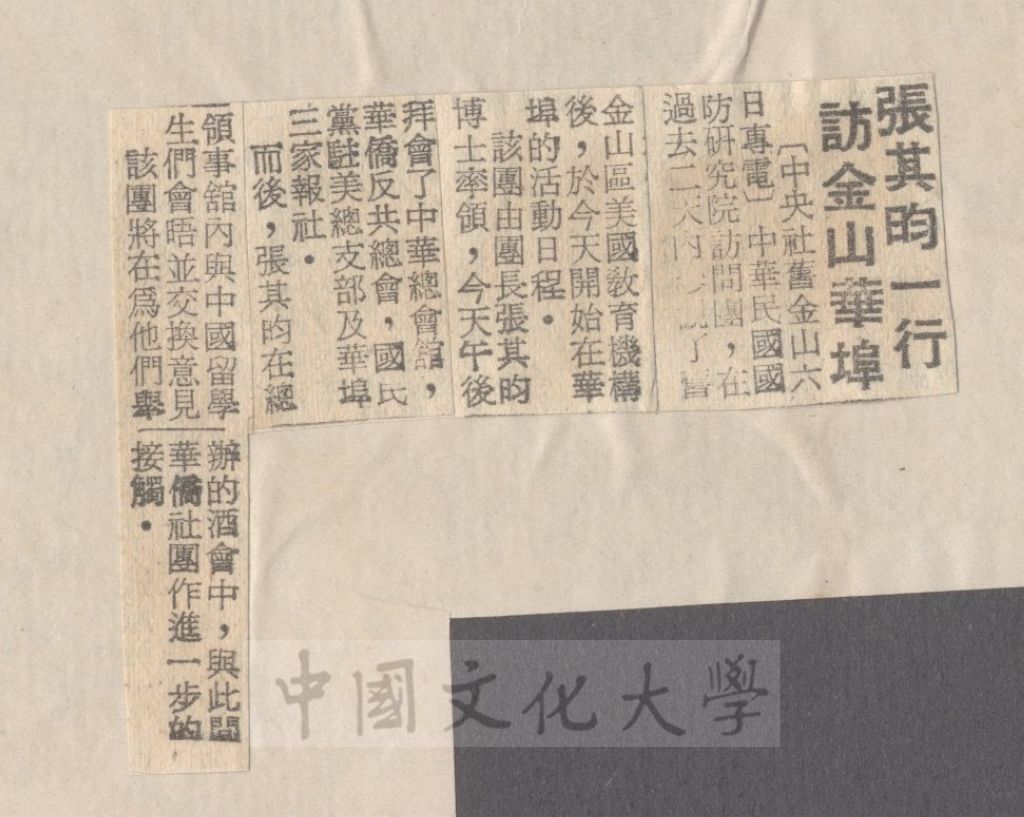 張其昀一行
訪金山華埠
〔中央社舊金山六
日專電〕中華民國國
防研究院訪問團，在
過去二天內了舊
金山區美國敎育機構
後，於今天開始在華
埠的活動日程．
該團由團長張其昀
博士率領，今天午後
拜會了中華總會舘，
華僑反共總會，國民
黨駐美總支部及華埠
三家報社．
而後，張其昀在總
領事舘內與中國留學
生們會晤並交換意見
該團將在爲他們舉
辦的酒會中，與此間
華僑社團作進一步的
接觸．
中國文化大學